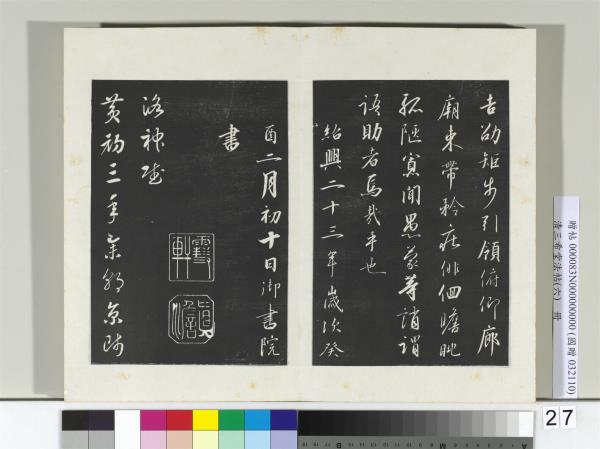 吉劭矩步引領俯仰廊
廟束帶矜莊俳佪瞻眺
孤陋寡聞愚蒙等誚謂
語助者焉哉乎也
紹興二十三年歲次癸
酉二月初十日御書院
書
洛神賦
黃初三年余朝京師
贈帖 000083N000000000 (國贈 032110)
清三希堂法帖(六) 冊
27